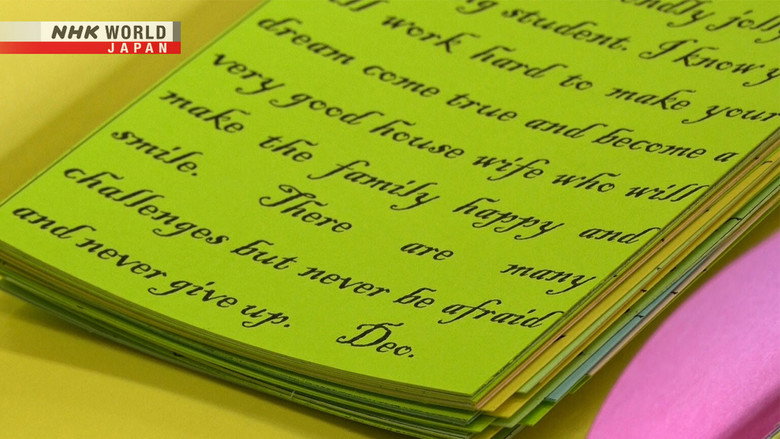 NHK WORLD
JAPAN
jolly
student. I know
work hard to make your
dream come true and become a
very good house wife who will
make the family happy and
smile. There are many
challenges but never be afraid
and never give up. Dec.